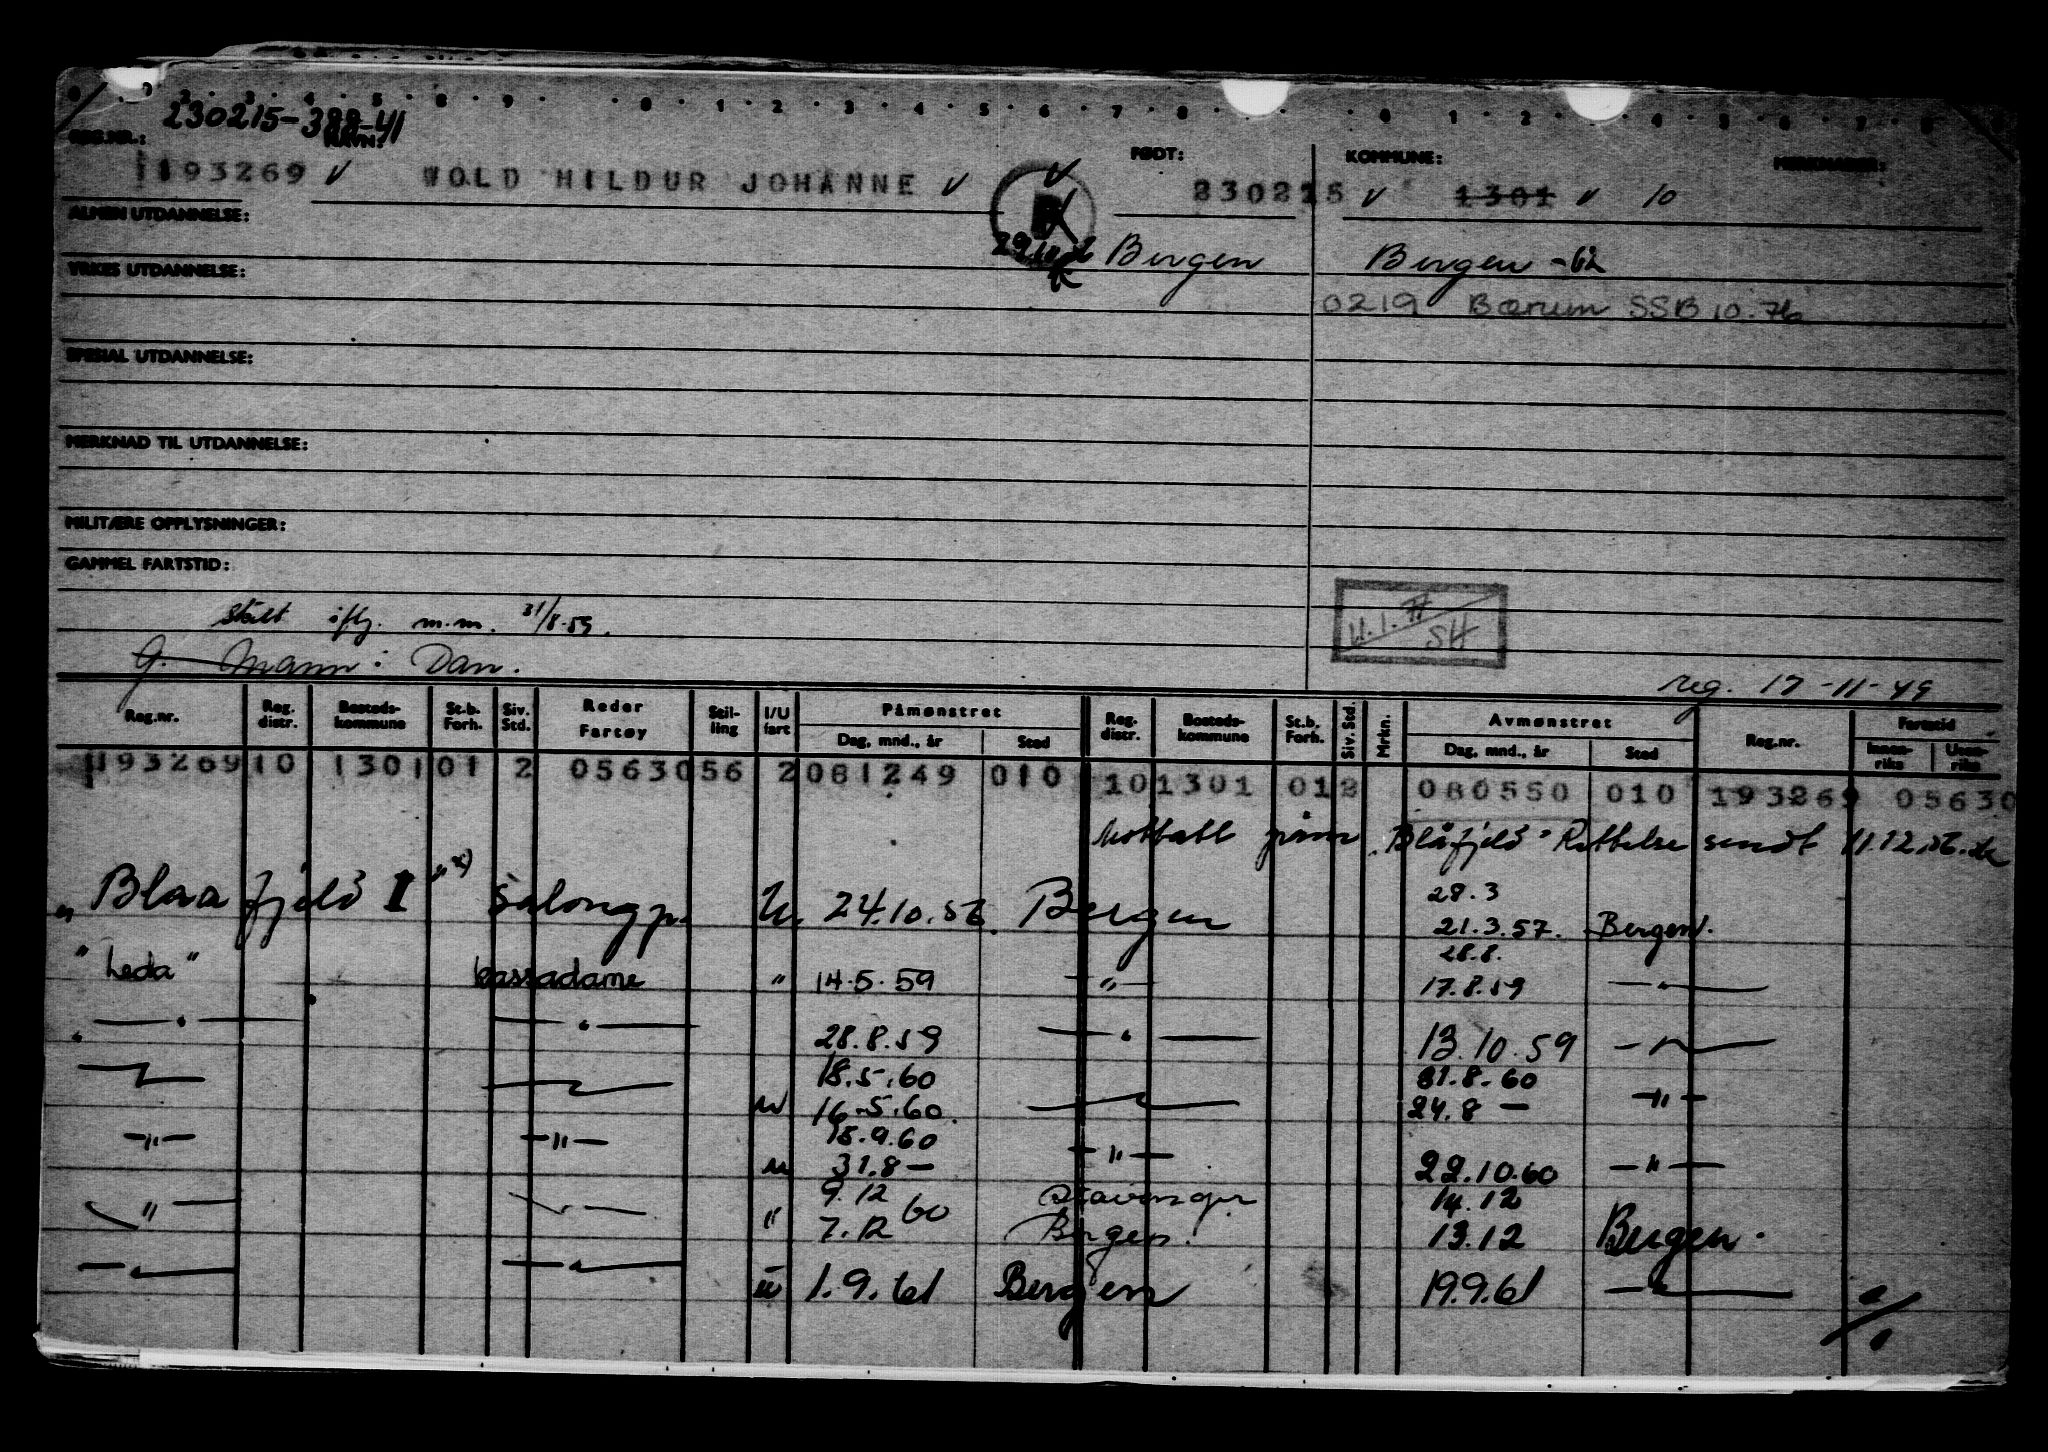 0 2 3 4 5 8 9 0 1 2 3 4 5 6 7 8 0 1 2 4 5 6 7 8
230215-388-41
REG.NR.: NAVN: FØDT: KOMMUNE: MERKNADER:
193269 v WOLD HILDUR JOHANNE v 230215 v 1301 v 10
ALMEN UTDANNELSE:
Bergen Bergen -62
YRKES UTDANNELSE:
0219 Bærum SSB 10.76
SPESIAL UTDANNELSE:
MERKNAD TIL UTDANNELSE:
MILITÆRE OPPLYSNINGER:
GAMMEL FARTSTID:
H.I.
SH
iflg. m.m. 31/8-59.
G. Mann: Dan.
reg. 17-11-49
Reg.nr. Reg. distr. Bosteds-kommune St.b. Forh. Siv. Std. Reder Fartøy Stil-ling I/U fart Påmønstret Dag, mnd., år Sted Reg. distr. Bosteds-kommune St.b. Forh. Siv. Std. Mrkn. Avmønstret Dag, mnd., år Sted Reg.nr. Fartstid Innen-riks Uten-riks
193269 10 1301 01 2 05630 56 2 081249 010 10 1301 01 2 080550 010 193269 05630
"Blåfjeld" Rettelse sendt 11.12.56.
28.3
"Blaafjeld I" x) Salongp. U. 24.10.56. Bergen 21.3.57. Bergen.
28.8.
"Leda" bassadame " 14.5.59 —"— 17.8.59 —"—
—"— —"— 28.8.59 —"— 13.10.59 —"—
18.5.60 31.8.60
—"— —"— u 16.5.60. —"— 24.8 — —"—
18.9.60
—"— —"— u 31.8— —"— 22.10.60 —"—
9.12 Stavanger 14.12
—"— —"— " 7.12 60 Bergen. 13.12 Bergen.
—"— —"— u 1.9.61 Bergen 19.9.61 —"—